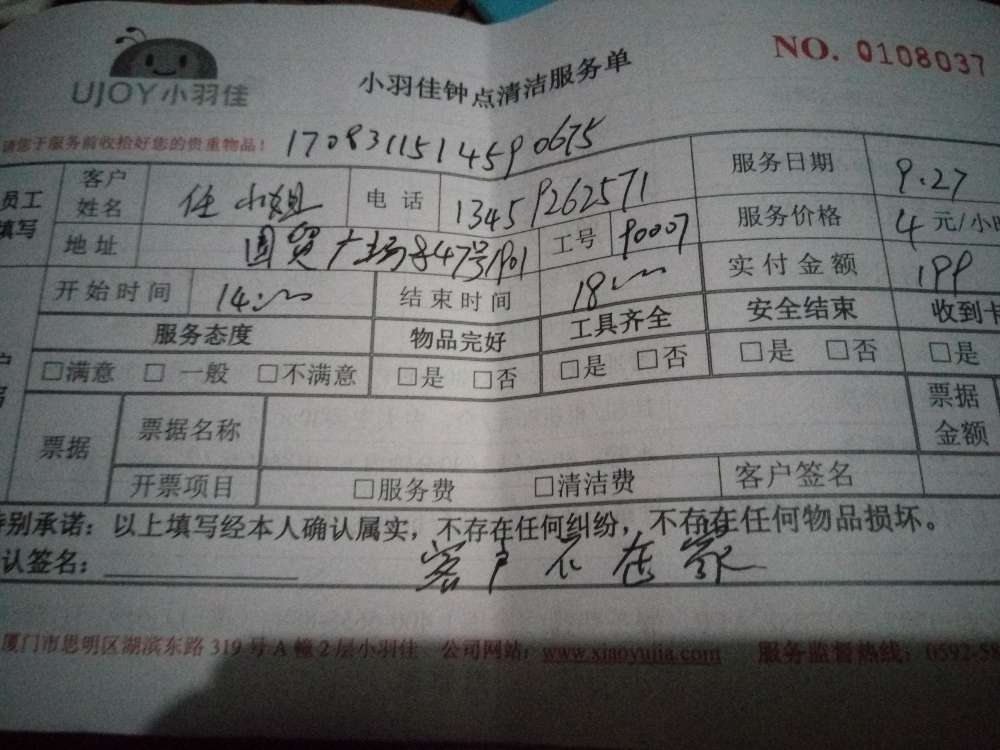 UJOY小羽佳
小羽佳钟点清洁服务单
NO. 0108037
请您于服务前收拾好您的贵重物品!
170831151459 0675
员工
填写
客户
姓名
任小姐
电话
13459262571
服务日期
9.27
地址
国贸广场
工号
90007
服务价格
4 元/小
开始时间
14:00
结束时间
18:00
实付金额
199
服务态度
物品完好
工具齐全
安全结束
收到卡
□满意 □ 一般 □不满意
□是 □否
□是 □否
□是 □否
□是
票据
票据名称
票据
金额
开票项目
□服务费 □清洁费
客户签名
特别承诺:以上填写经本人确认属实,不存在任何纠纷,不存在任何物品损坏。
认签名:
客户不在家
厦门市思明区湖滨东路 319 号 A 幢 2 层小羽佳 公司网站:www.xiaoyujia.com 服务监督热线:0592-58